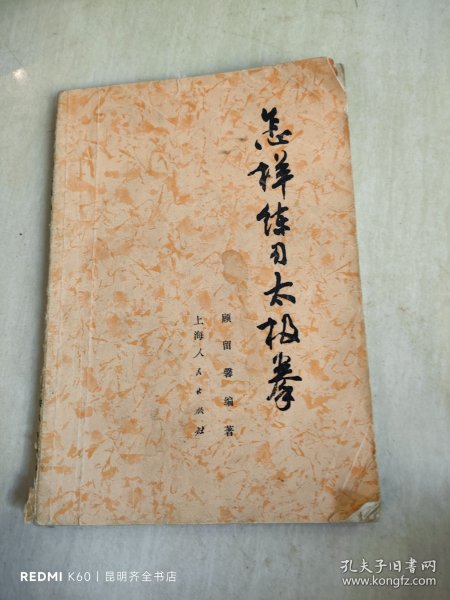 怎样练习太极拳
顾留馨编著
上海人民出版社
REDMI K60 | 昆明齐全书店
孔夫子旧书网
www.kongfz.com